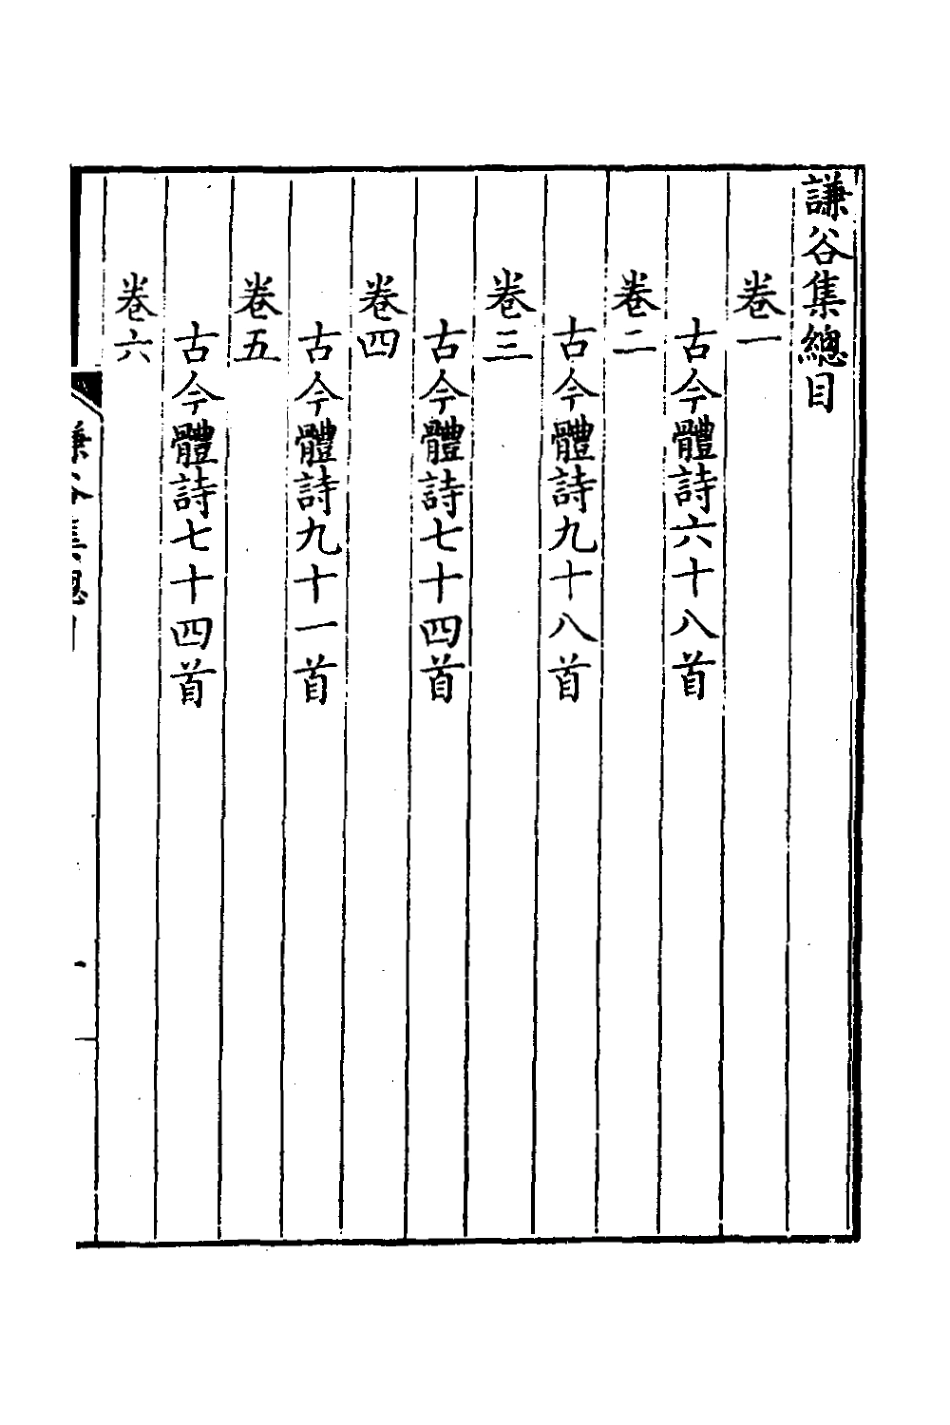 謙谷集總目
卷一
古今體詩六十八首
卷二
古今體詩九十八首
卷三
古今體詩七十四首
卷四
古今體詩九十一首
卷五
古今體詩七十四首
卷六